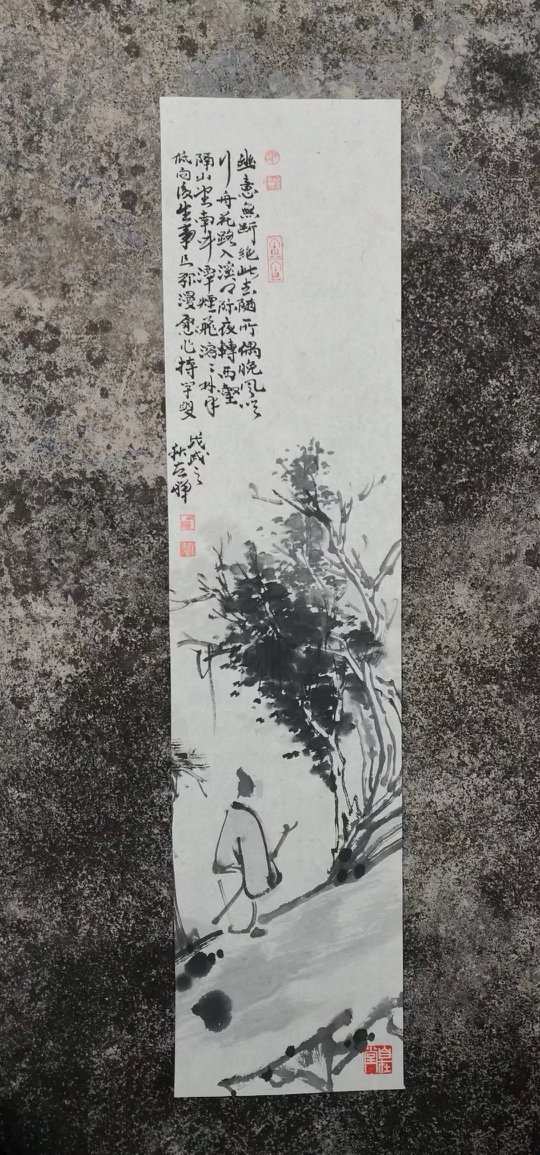 幽意無斷絕此去隨所偶晚風吹
行舟花路入溪口際夜轉西壑
隔山望南斗潭煙飛溶々林月
低向後生事且彌漫願為持竿叟
戊戌之
秋石